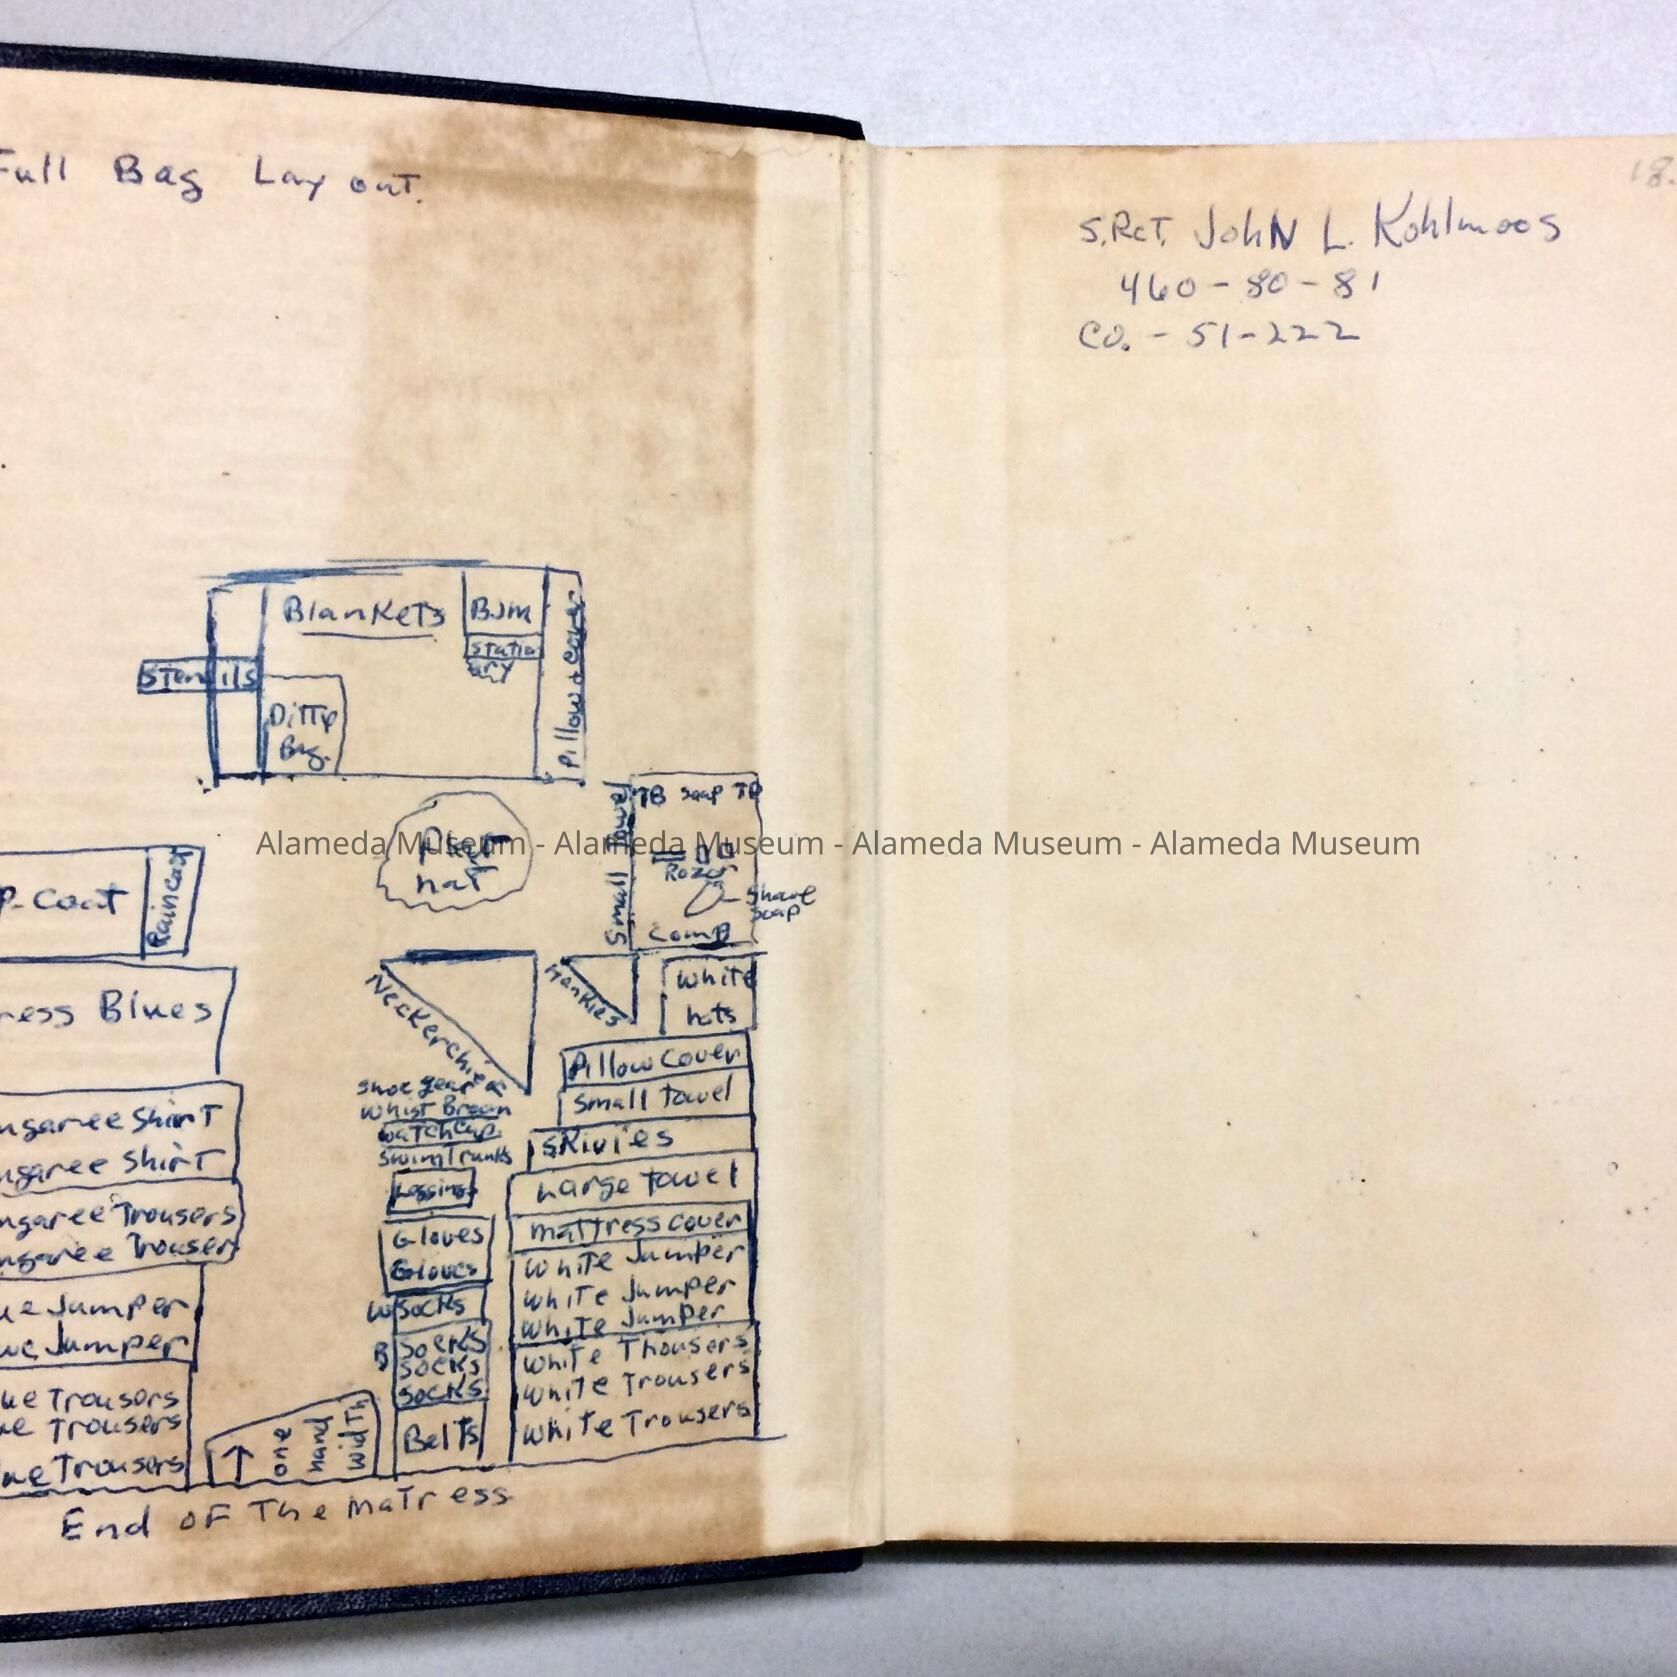 Full Bag Layout.
Blankets
BJM
Station
ary
Pillow & cover
Stencils
Ditty
Bag.
Flat
hat
Small Towel
TB Soap TP
Razor
Shave
Soap
Comb
P-Coat
Raincoat
ress Blues
ngaree Shirt
ngaree Shirt
ngaree Trousers
ngaree Trouser
ue Jumper
ue Jumper
ue Trousers
ue Trousers
lue Trousers
one
hand
width
Neckerchief
Hankies
White
hats
Shoe gear
Whist Broom
Watch Cap
Swim Trunks
Leggings
Gloves
Gloves
W Socks
B Socks
Socks
Socks
Belts
Pillow Cover
Small towel
SKivies
Large towel
mattress cover
White Jumper
White Jumper
White Jumper
White Thousers
White Trousers
White Trousers
End of The matress
18.
S.RcT. John L. Kohlmoos
460-80-81
Co. - 51-222
Alameda Museum - Alameda Museum - Alameda Museum - Alameda Museum